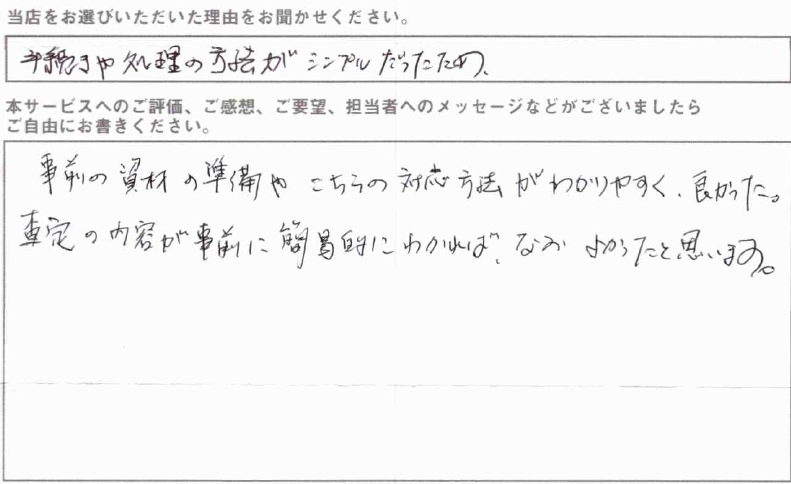 当店をお選びいただいた理由をお聞かせください。
手続きや処理の方法がシンプルだったため、
本サービスへのご評価、ご感想、ご要望、担当者へのメッセージなどがございましたら
ご自由にお書きください。
事前の資材の準備やこちらの対応方法がわかりやすく、良かった。
査定の内容が事前に簡易的にわかれば、なおよかったと思います。